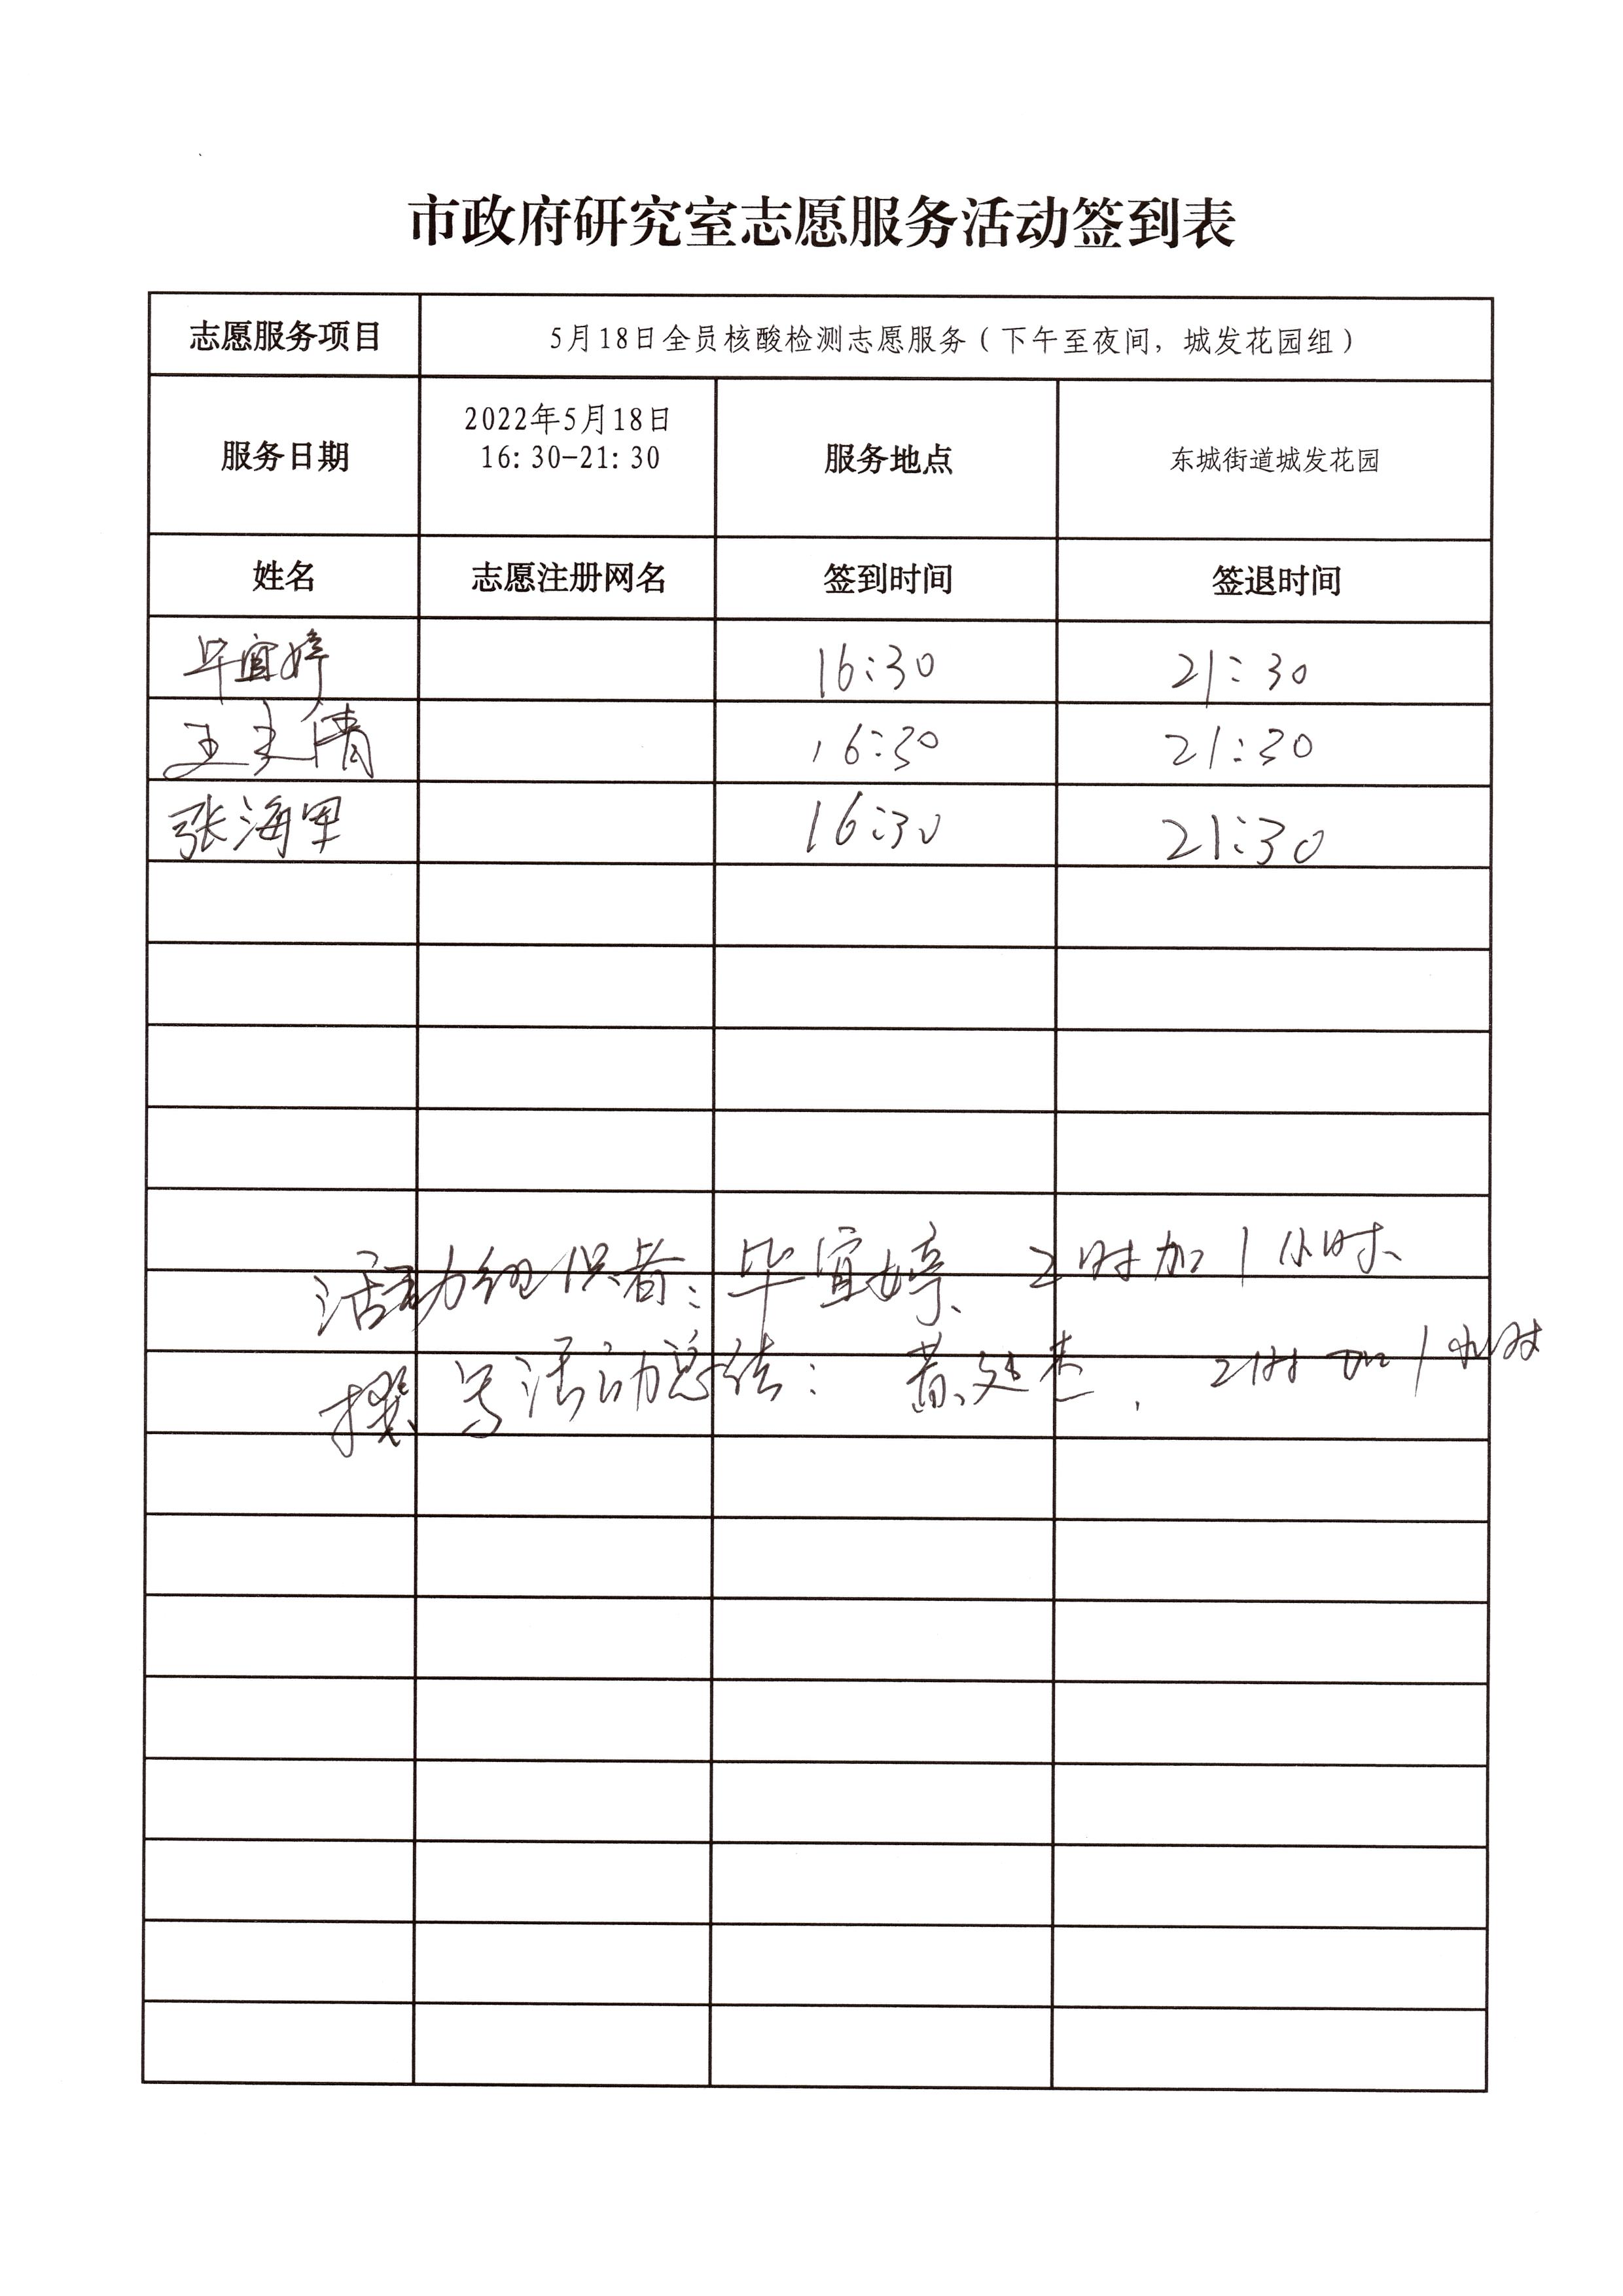 市政府研究室志愿服务活动签到表
志愿服务项目 5月18日全员核酸检测志愿服务（下午至夜间，城发花园组）
服务日期 2022年5月18日 16:30-21:30 服务地点 东城街道城发花园
姓名 志愿注册网名 签到时间 签退时间
毕宜婷 16:30 21:30
王 倩 16:30 21:30
张海军 16:30 21:30
活动组织者：毕宜婷、工时加1小时、
撰写活动总结：黄 ，工时加1小时